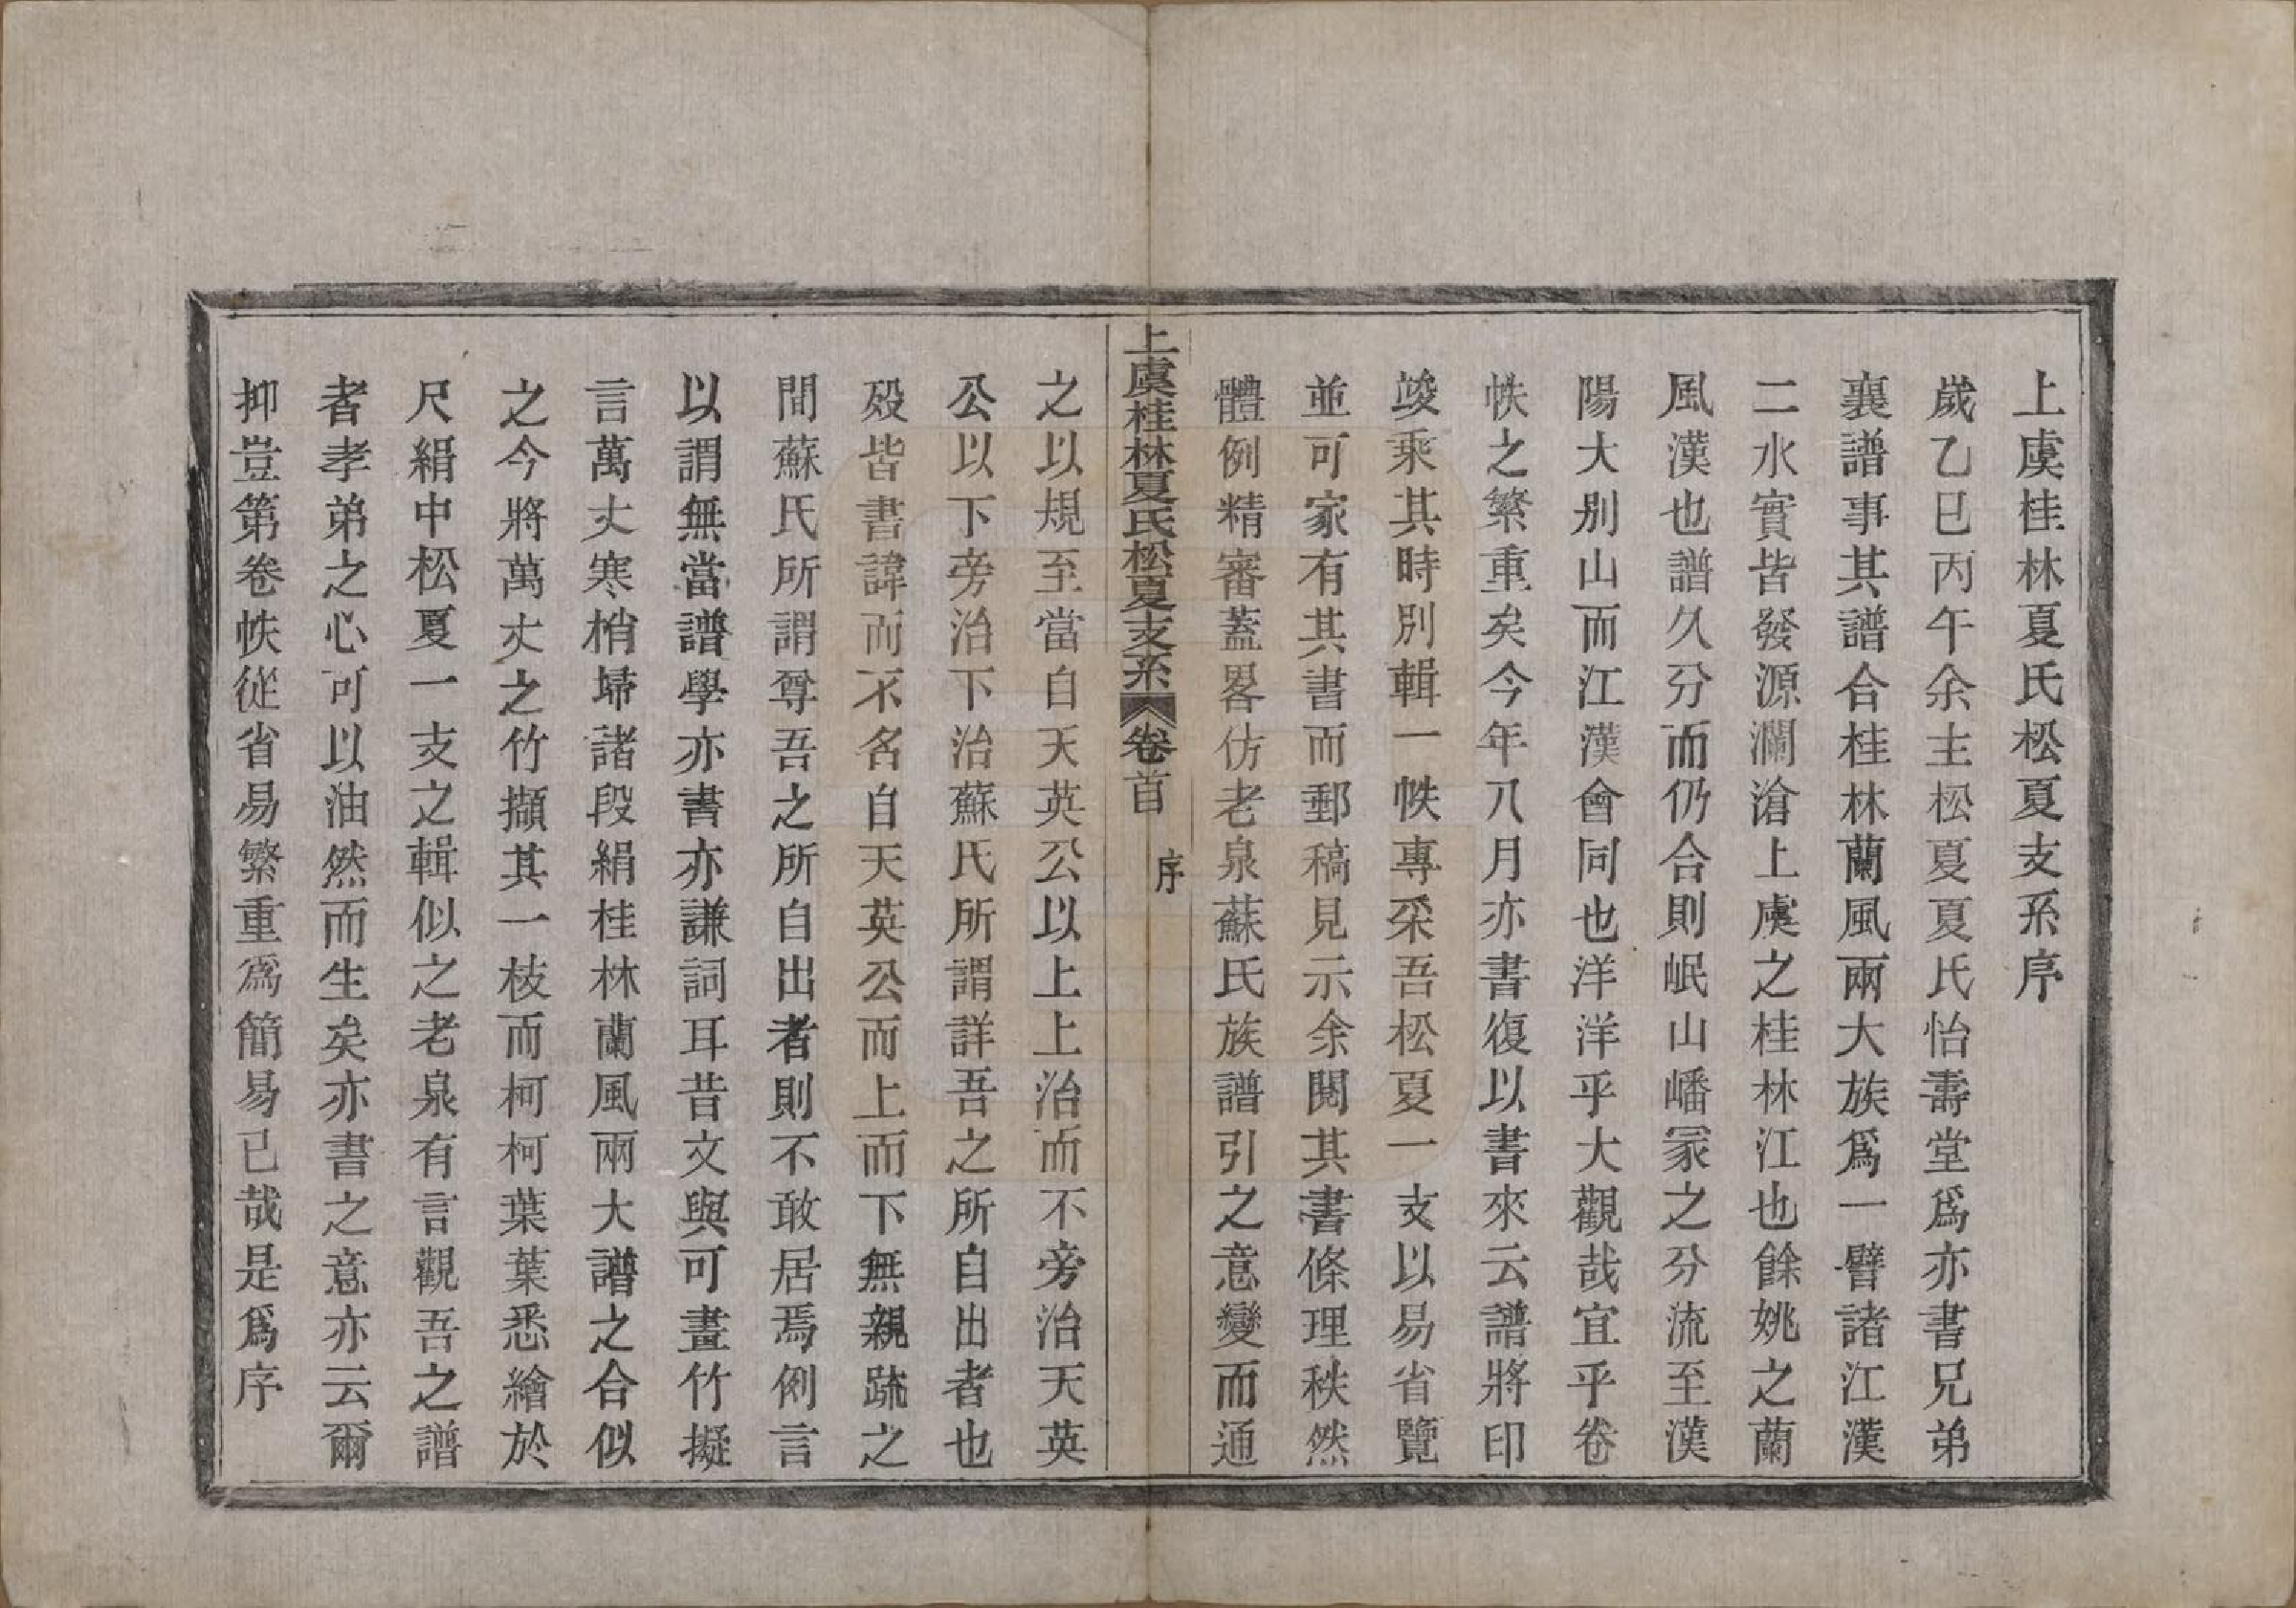 上虞桂林夏氏松夏支系序
歲乙巳丙午余主松夏夏氏怡壽堂爲亦書兄弟
襄譜事其譜合桂林蘭風兩大族爲一譬諸江漢
二水實皆發源瀾滄上虞之桂林江也餘姚之蘭
風漢也譜久分而仍合則岷山嶓冢之分流至漢
陽大别山而江漢會同也洋洋乎大觀哉宜乎卷
帙之繁重矣今年八月亦書復以書來云譜將印
竣乘其時别輯一帙專采吾松夏一支以易省覽
並可家有其書而郵稿見示余閱其書條理秩然
體例精審蓋畧仿老泉蘇氏族譜引之意變而通
上虞桂林夏氏松夏支系 卷首 序
之以規至當自天英公以上上治而不旁治天英
公以下旁治下治蘇氏所謂詳吾之所自出者也
殁皆書諱而不名自天英公而上而下無親疏之
間蘇氏所謂尊吾之所自出者則不敢居焉例言
以謂無當譜學亦書亦謙詞耳昔文與可畫竹擬
言萬丈寒梢埽諸段絹桂林蘭風兩大譜之合似
之今將萬丈之竹擷其一枝而柯柯葉葉悉繪於
尺絹中松夏一支之輯似之老泉有言觀吾之譜
者孝弟之心可以油然而生矣亦書之意亦云爾
抑豈第卷帙從省易繁重爲簡易已哉是爲序